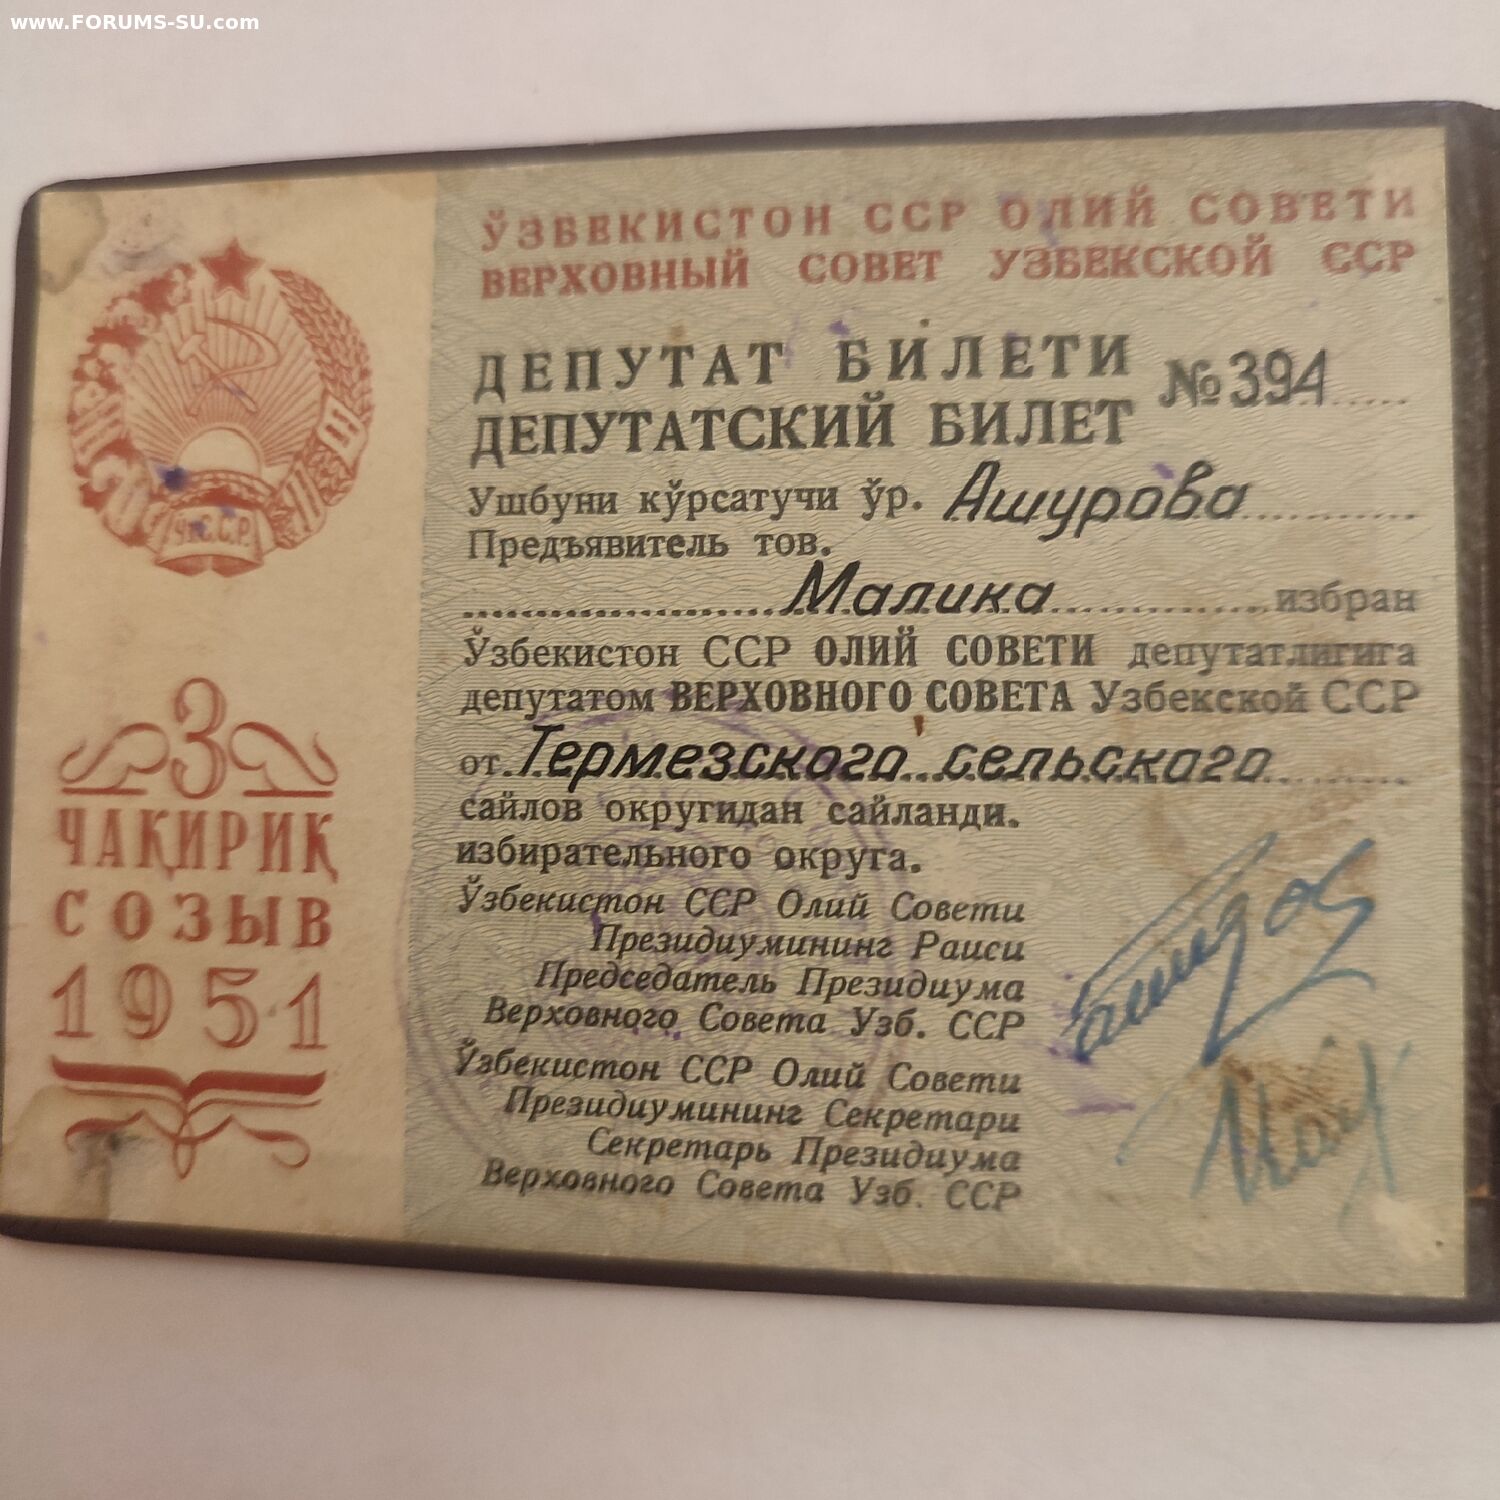 www.FORUMS-SU.com
ЎЗБЕКИСТОН ССР ОЛИЙ СОВЕТИ
ВЕРХОВНЫЙ СОВЕТ УЗБЕКСКОЙ ССР
ДЕПУТАТ БИЛЕТИ
ДЕПУТАТСКИЙ БИЛЕТ
№394
Ушбуни кўрсатучи ўр. Ашурова
Предъявитель тов.
Малика избран
Ўзбекистон ССР ОЛИЙ СОВЕТИ депутатлигига
депутатом ВЕРХОВНОГО СОВЕТА Узбекской ССР
от Термезского сельского
сайлов округидан сайланди.
избирательного округа.
Ўзбекистон ССР Олий Совети
Президиумининг Раиси
Председатель Президиума
Верховного Совета Узб. ССР
Ўзбекистон ССР Олий Совети
Президиумининг Секретари
Секретарь Президиума
Верховного Совета Узб. ССР
3
ЧАҚИРИҚ
СОЗЫВ
1951